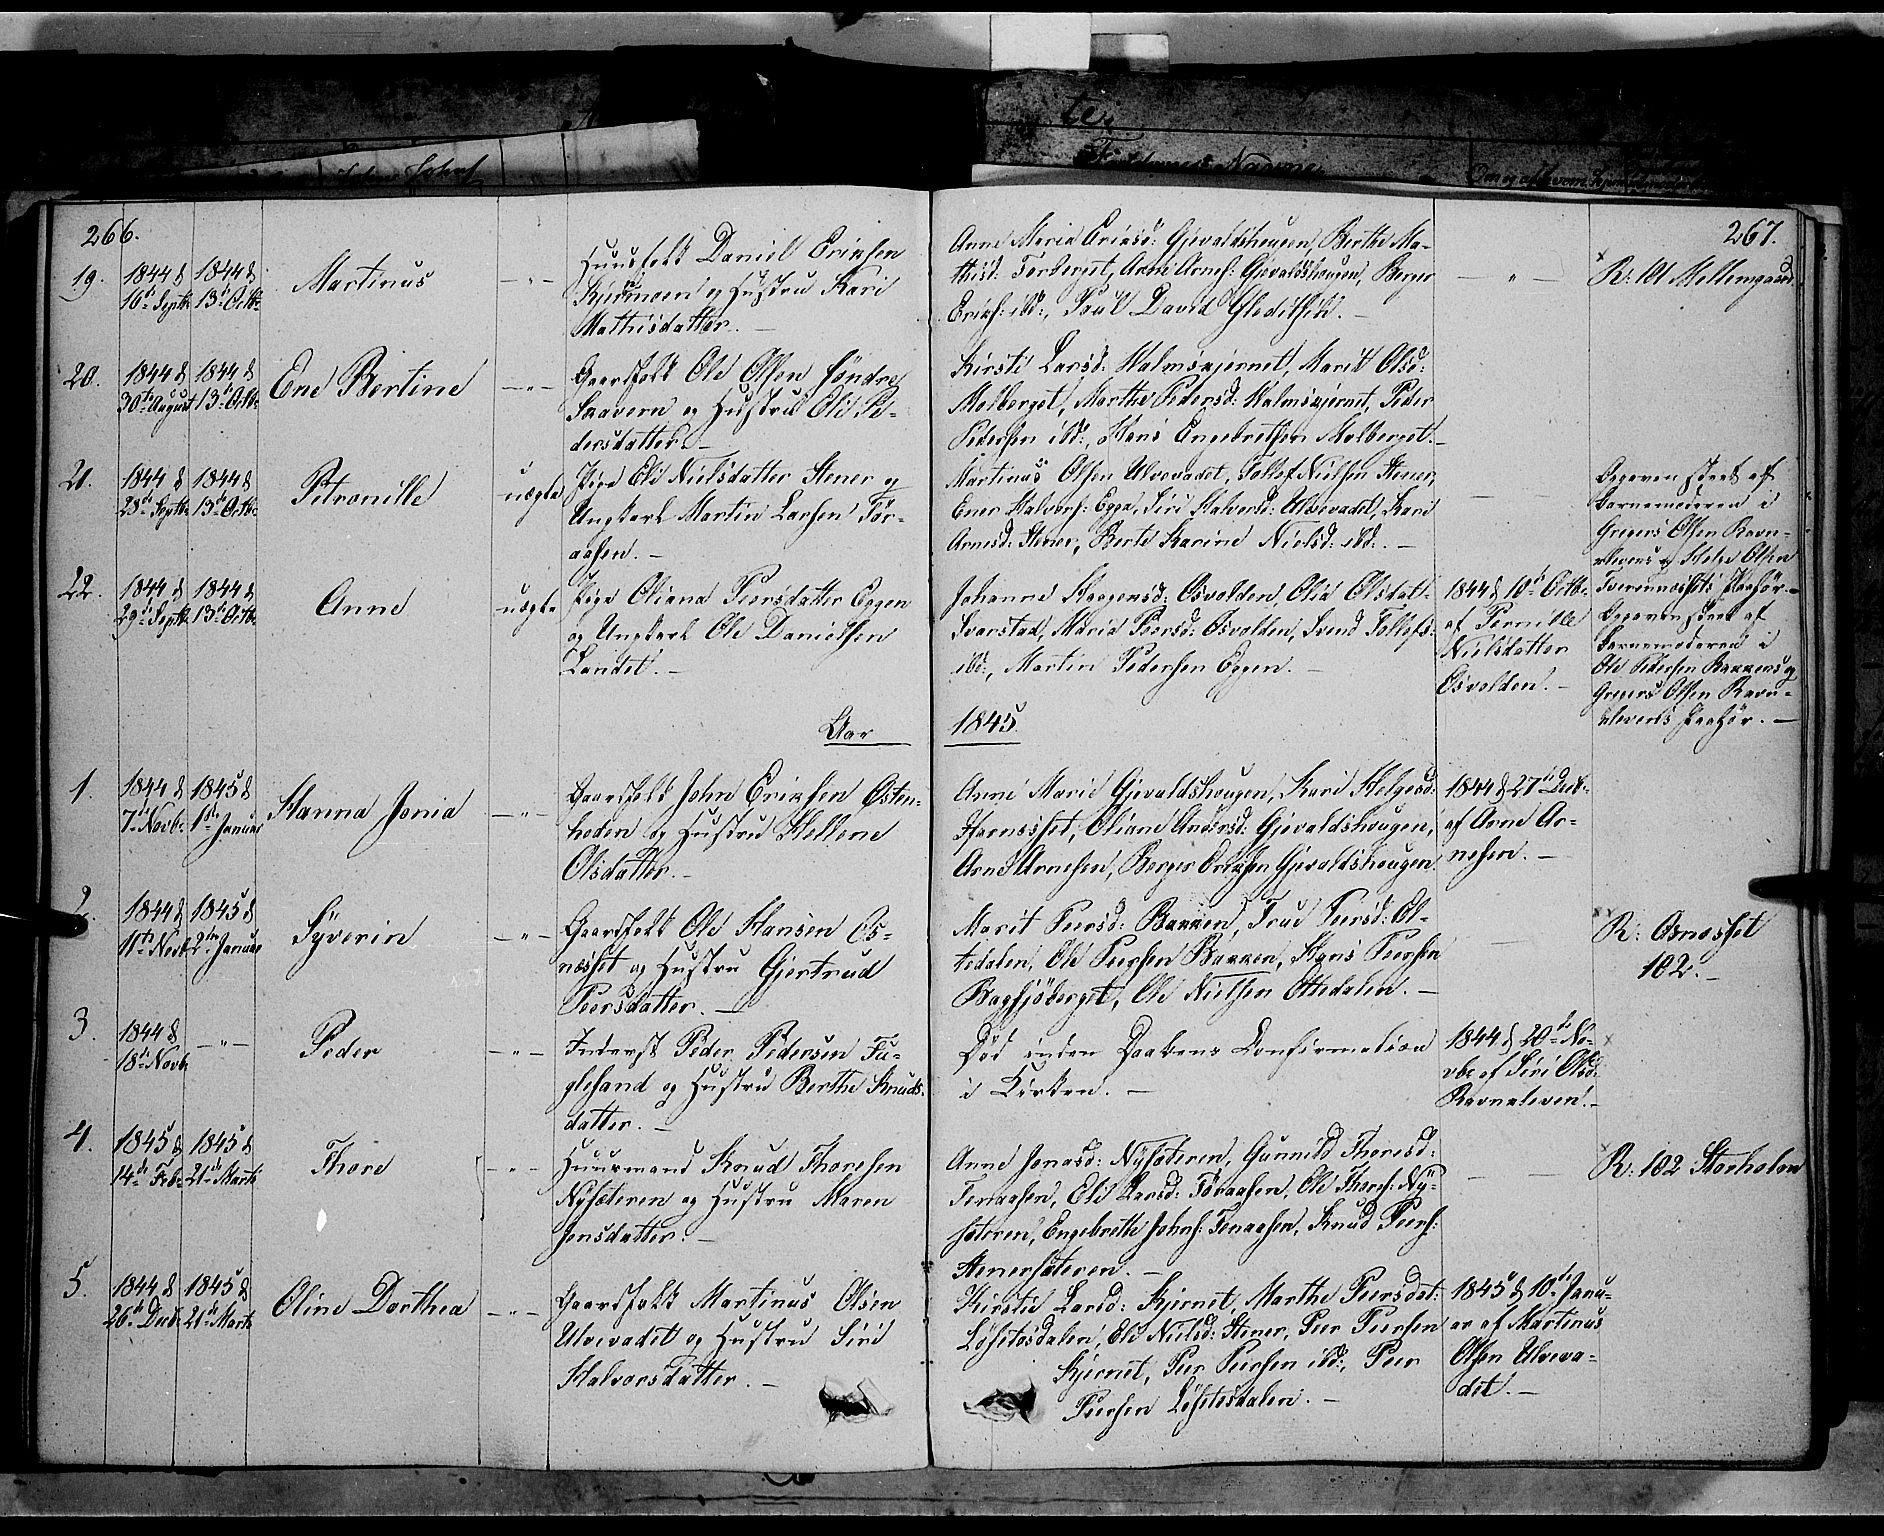 266.
19.
1844 d
16de Septbr
1844 d
13de Octbr
Martinus
— " —
Huusfolk Daniel Eriksen
Kiermoen og Hustru Kari
Mathisdatter. —
20.
1844 d
30te August
1844 d
13de Octbr
Ene Bertine
— " —
Gaardfolk Ole Olsen søndre
Skavern og Hustru Oli Pe-
dersdatter. —
21.
1844 d
28de Septbr
1844 d
13de Octbr
Petronille
uægte
Pige Eli Nielsdatter Stener og
Ungkarl Martin Larsen Tør-
aasen. —
22.
1844 d
29de Septbr
1844 d
13de Octbr
Anne
uægte
Pige Oliana Peersdatter Eggen
og Ungkarl Ole Danielsen
Landet. —
Aar
1.
1844 d
7de Novbr
1845 d
1ste Januar
Hanna Jonia
— " —
Gaardfolk John Eriksen Østen-
heden og Hustru Hellene
Olsdatter. —
2.
1844 d
11te Novbr
1845 d
2den Januar
Syverin
— " —
Gaardfolk Ole Hansen Os-
næsset og Hustru Gjertrud
Peersdatter. —
3.
1844 d
18de Novbr
— " —
Peder
— " —
Inderst Peder Pedersen Fu-
glesand og Hustru Berthe Knuds-
datter. —
4.
1845 d
14de Febr
1845 d
21de Marts
Thore
— " —
Huusmand Knud Thoresen
Nysæteren og Hustru Maren
Jonsdatter. —
5.
1844 d
26de Decbr
1845 d
21de Marts
Oline Dorthea
— " —
Gaardfolk Martinus Olsen
Ulvevadet og Hustru Siri
Halvorsdatter. —
267.
Anne Maria Eriksd: Gjevaldshougen, Berthe Ma-
thisd: Torberget, Arne Arnes: Gjevaldshougen, Berger
Eriks: ibd:, Poul David Gleditsen. —
— " —
R: 101 Mellemgaard.
Kirsti Larsd: Halmskjernet, Marit Olsd:
Molberget, Marthe Pedersd: Halmskjernet, Peder
Pedersen ibd:, Hans Engebretsen Molberget. —
Martinus Olsen Ulvevadet, Tollef Nielsen Stener,
Ener Halvors: Eggen, Siri Halvorsd: Ulvevadet, Kari
Arnesd: Stener, Berte Karine Nielsd: ibd: —
—
Begavenskret af
Barnemoderen i
Gregers Olsen Ravn-
klevens og Helge Olsen
Paahør. —
Johanne Haagensd: Osvolden, Olia Olsdat:
Svarstad, Maria Peersd: Osvolden, Svend Tollefs:
ibd:, Martin Pedersen Eggen. —
1844 d 10de Octbr
af Pernille
Nielsdatter
Osvolden. —
Begavenskret af
Barnemoderen i
Ole Pedersen Bakkens og
Gregers Olsen Ravn-
klevens Paahør. —
1845.
Anne Marie Gjevaldshougen, Kari Helgesd:
Harnesset, Oliane Andersd: Gjevaldshougen,
Arne Arnesen, Berger Eriksen Gjevaldshougen.
1844 d 27de Decbr
af Arne Ar-
nesen. —
Marit Peersd: Bakken, Trud Peersd: Ot-
tedalen, Ole Peersen Bakken, Hans Peersen
Bagsjøberget, Ole Nielsen Ottedalen. —
—
R: Osnæsset
102. —
Død inden Daabens Confirmation
i Kirken. —
1844 d 20de No-
vbr af Siri Olsd:
Ravnkleven. —
Anne Jonasd: Nysæteren, Gunnild Thoresd:
Tenaasen, Eli Larsd: Tøraasen, Ole Thores: Ny-
sæteren, Engebrette Johns: Tenaasen, Knud Peers:
Stenersæteren. —
—
R: 102 Storholen
Kirstie Larsd: Kjernet, Marthe Peersdat:
Løsetesdalen, Eli Nielsd: Stener, Peer Peersen
Kjernet, Peer Peersen ibd:, Peer
Peersen Løsetesdalen. —
1845 d 10de Janu-
ar af Martinus
Olsen Ulveva-
det. —